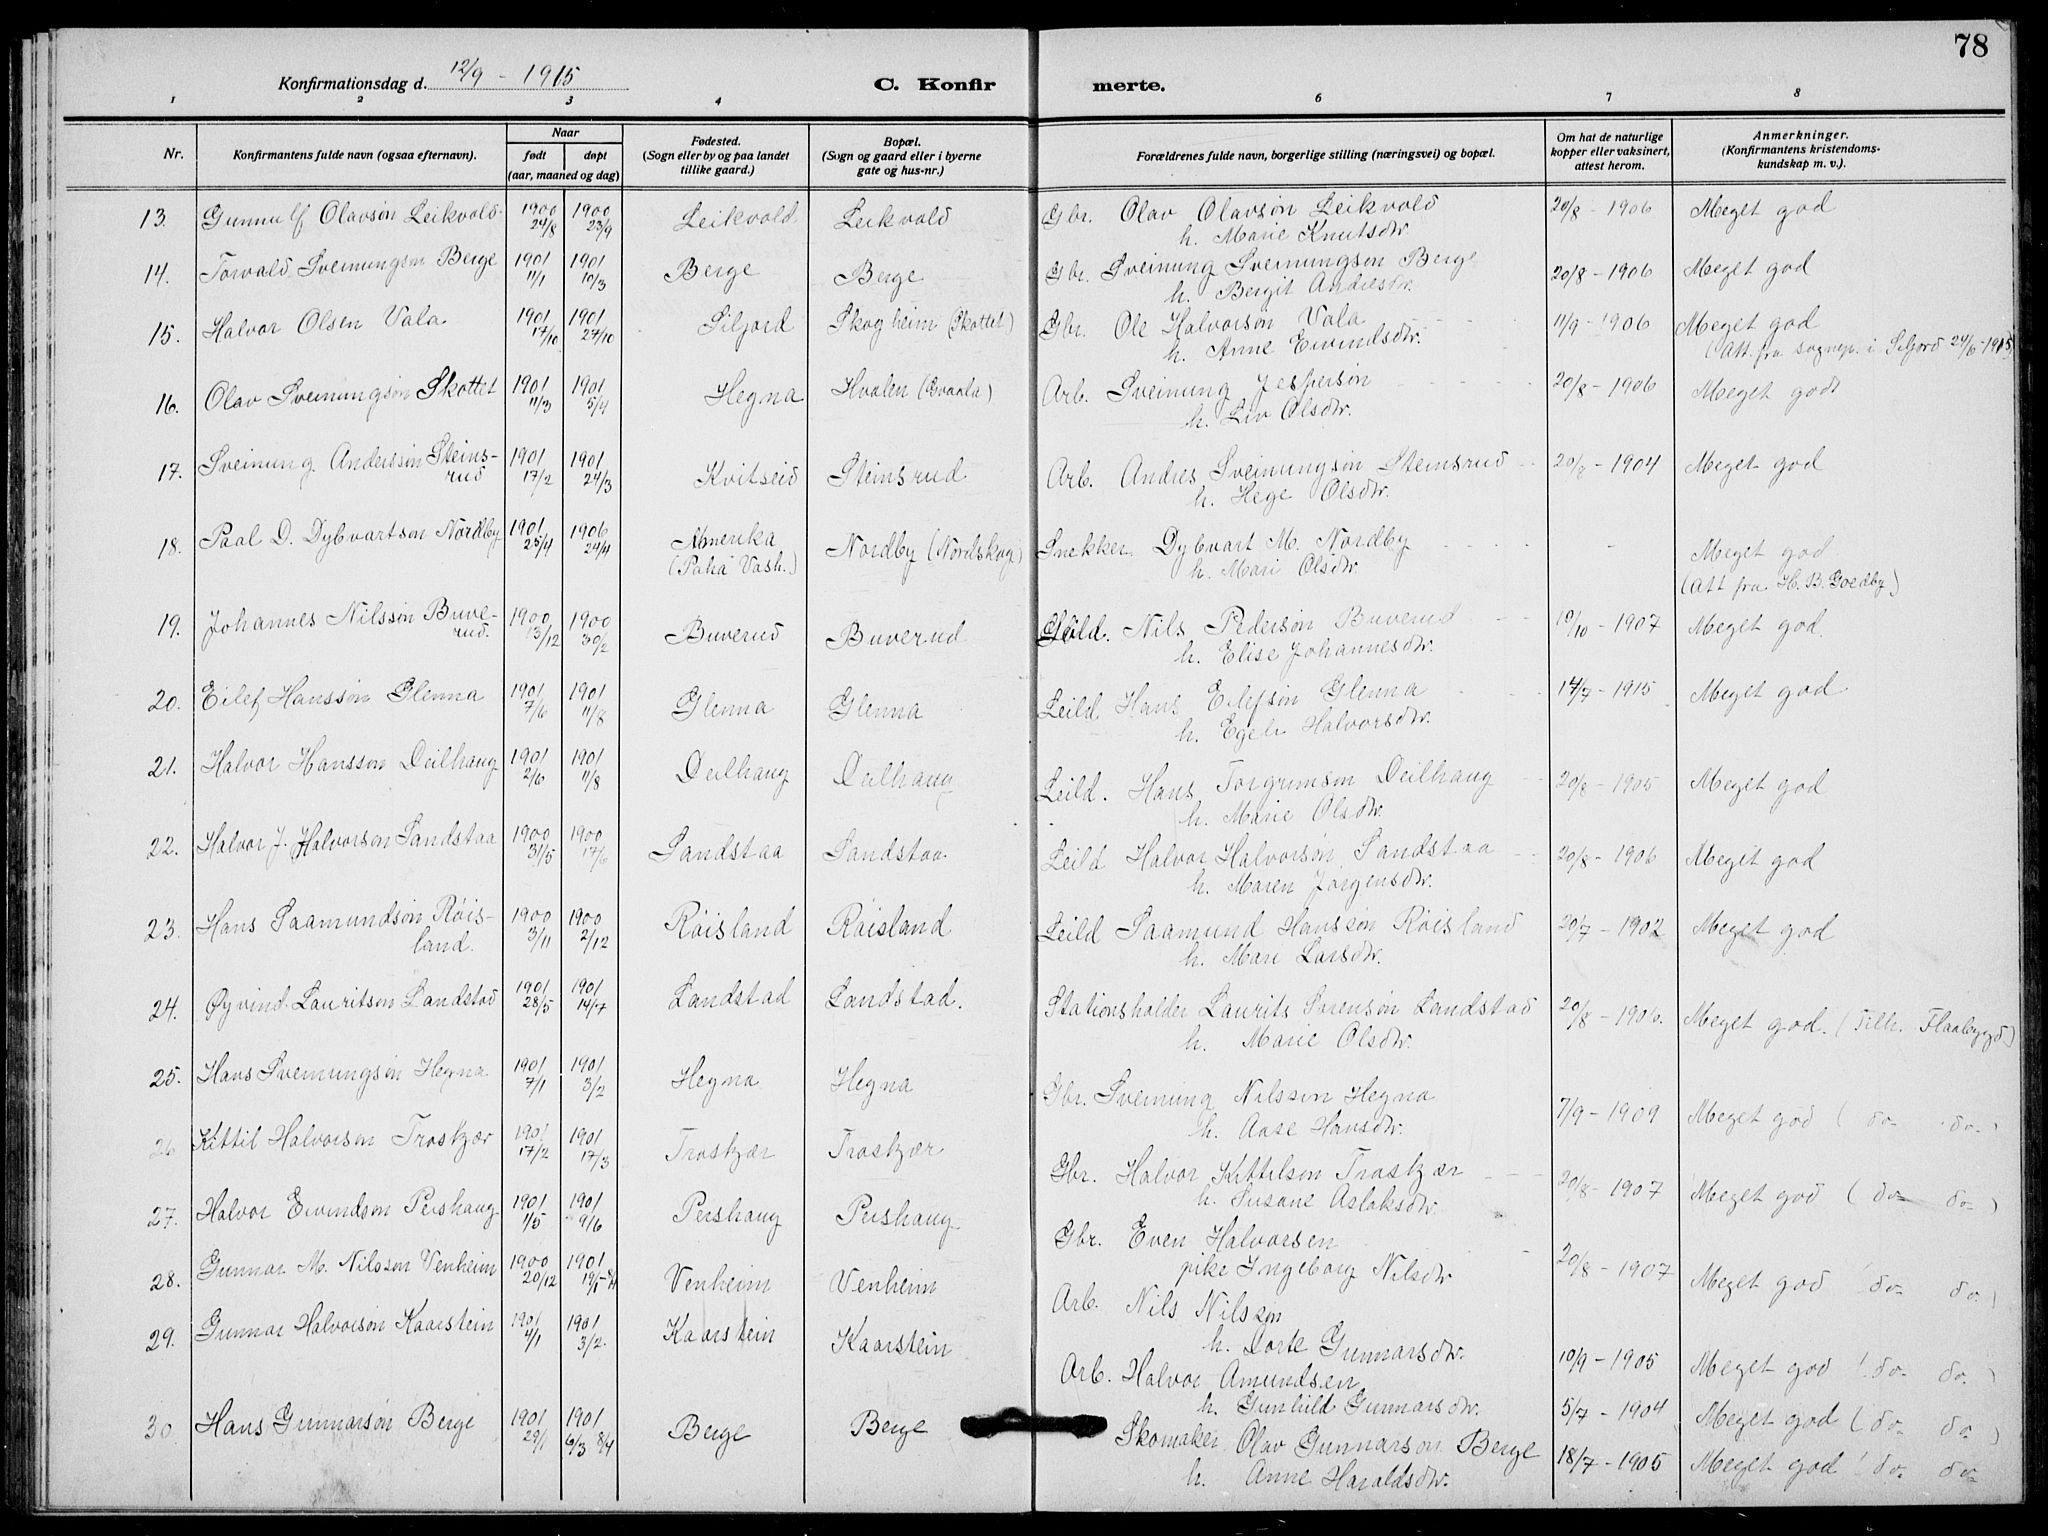 78
Konfirmationsdag d. 12/9 - 1915
C. Konfir
merte.
1 2 3 4 6 7 8
Nr.
Konfirmantens fulde navn (ogsaa efternavn).
Naar
født døpt
(aar, maaned og dag)
Fødested.
(Sogn eller by og paa landet
tillike gaard.)
Bopæl.
(Sogn og gaard eller i byerne
gate og hus-nr.)
Forældrenes fulde navn, borgerlige stilling (næringsvei) og bopæl.
Om hat de naturlige
kopper eller vaksinert,
attest herom.
Anmerkninger.
(Konfirmantens kristendoms-
kundskap m. v.).
13. Gunnulf Olavsøn Leikvold 1900 1900 Leikvold Leikvold Gbr. Olav Olavsøn Leikvold 20/8 - 1906 Meget god
29/8 23/9 h. Marie Knutsdtr.
14. Torvald Sveinungsøn Berge 1901 1901 Berge Berge Gbr. Sveinung Sveinungsøn Berge 20/8 - 1906 Meget god
11/1 10/3 h. Bergit Andresdtr.
15. Halvor Olsen Vala 1901 1901 Siljord Skogheim (Skottet) Gbr. Ole Halvorsøn Vala 11/9 - 1906 Meget god
17/10 27/10 h. Anne Eivindsdtr. (Att. fra sognep. i Siljord 24/6-1915)
16. Olav Sveinungsøn Skottet 1901 1901 Hegna Hvalen (Gvaala) Arb. Sveinung Jespersøn 20/8 - 1906 Meget god
11/3 5/4 h. Liv Olsdtr.
17. Sveinung Anderssøn Steins- 1901 1901 Kvitseid Steinsrud Arb. Andres Sveinungsøn Steinsrud 20/8 - 1904 Meget god
rud 17/2 24/3 h. Hege Olsdtr.
18. Paal D. Dybvartsøn Nordby 1901 1906 Amerika Nordby (Nordskog) Snekker Dybvart M. Nordby - Meget god
25/4 24/4 (Paha Vash.) h. Mari Olsdtr. (att fra H. B. Goedby)
19. Johannes Nilssøn Buve- 1900 1900 Buverud Buverud Leild. Nils Pedersøn Buverud 10/10 - 1907 Meget god.
rud. 13/12 30/2 h. Elise Johannesdtr.
20. Eilef Hanssøn Glenna 1901 1901 Glenna Glenna Leild Hans Eilefsøn Glenna 14/7 - 1915 Meget god
7/6 11/8 h. Halvorsdtr.
21. Halvor Hanssøn Deilhaug 1901 1901 Deilhaug Deilhaug Leild. Hans Torgrimsøn Deilhaug 20/8 - 1905 Meget god
2/6 11/8 h. Marie Olsdtr.
22. Halvor J. Halvorsøn Sandstaa 1900 1900 Sandstaa Sandstaa Leild Halvor Halvorsøn Sandstaa 20/8 - 1906 Meget god
31/5 17/6 h. Maren Jørgensdtr.
23. Hans Saamundsøn Røis- 1900 1900 Røisland Røisland Leild Saamund Hanssøn Røisland 20/7 - 1902 Meget god
land. 3/11 2/12 h. Mari Larsdtr.
24. Øyvind Lauritsøn Landstad 1901 1901 Landstad Landstad. Stationsholder Laurits Sørensøn Landstad 20/8 - 1906. Meget god. (Tilh. Flaabygd)
28/5 14/7 h. Marie Olsdtr.
25. Hans Sveinungsøn Hegna 1901 1901 Hegna Hegna Gbr. Sveinung Nilssøn Hegna 7/9 - 1909 Meget god ( do do )
7/1 3/2 h. Aase Hansdtr.
26 Kittil Halvorsøn Troskjær 1901 1901 Troskjær Troskjær Gbr. Halvor Kittilsøn Troskjær 20/8 - 1907 Meget god ( do do )
17/2 17/3 h. Susane Aslaksdtr.
27. Halvor Eivindsøn Pershaug 1901 1901 Pershaug Pershaug Gbr. Even Halvorsen 20/8 - 1907 Meget god ( do do )
1/5 9/6 pike Ingeborg Nilsdtr
28. Gunnar M. Nilssøn Venheim 1900 1901 Venheim Venheim Arb. Nils Nilssøn 10/9 - 1905 Meget god ( do do )
20/12 h. Dorte Gunnarsdtr.
29. Gunnar Halvorsøn Kaarstein 1901 1901 Kaarstein Kaarstein Arb. Halvor Amundsen 5/7 - 1904 Meget god ( do do )
4/1 3/2 h. Gunhild Gunnarsdtr.
30 Hans Gunnarsøn Berge 1901 1901 Berge Berge Skomaker Olav Gunnarsøn Berge 18/7 - 1905 Meget god ( do do
29/1 6/3 8/4 h. Anne Haraldsdtr.